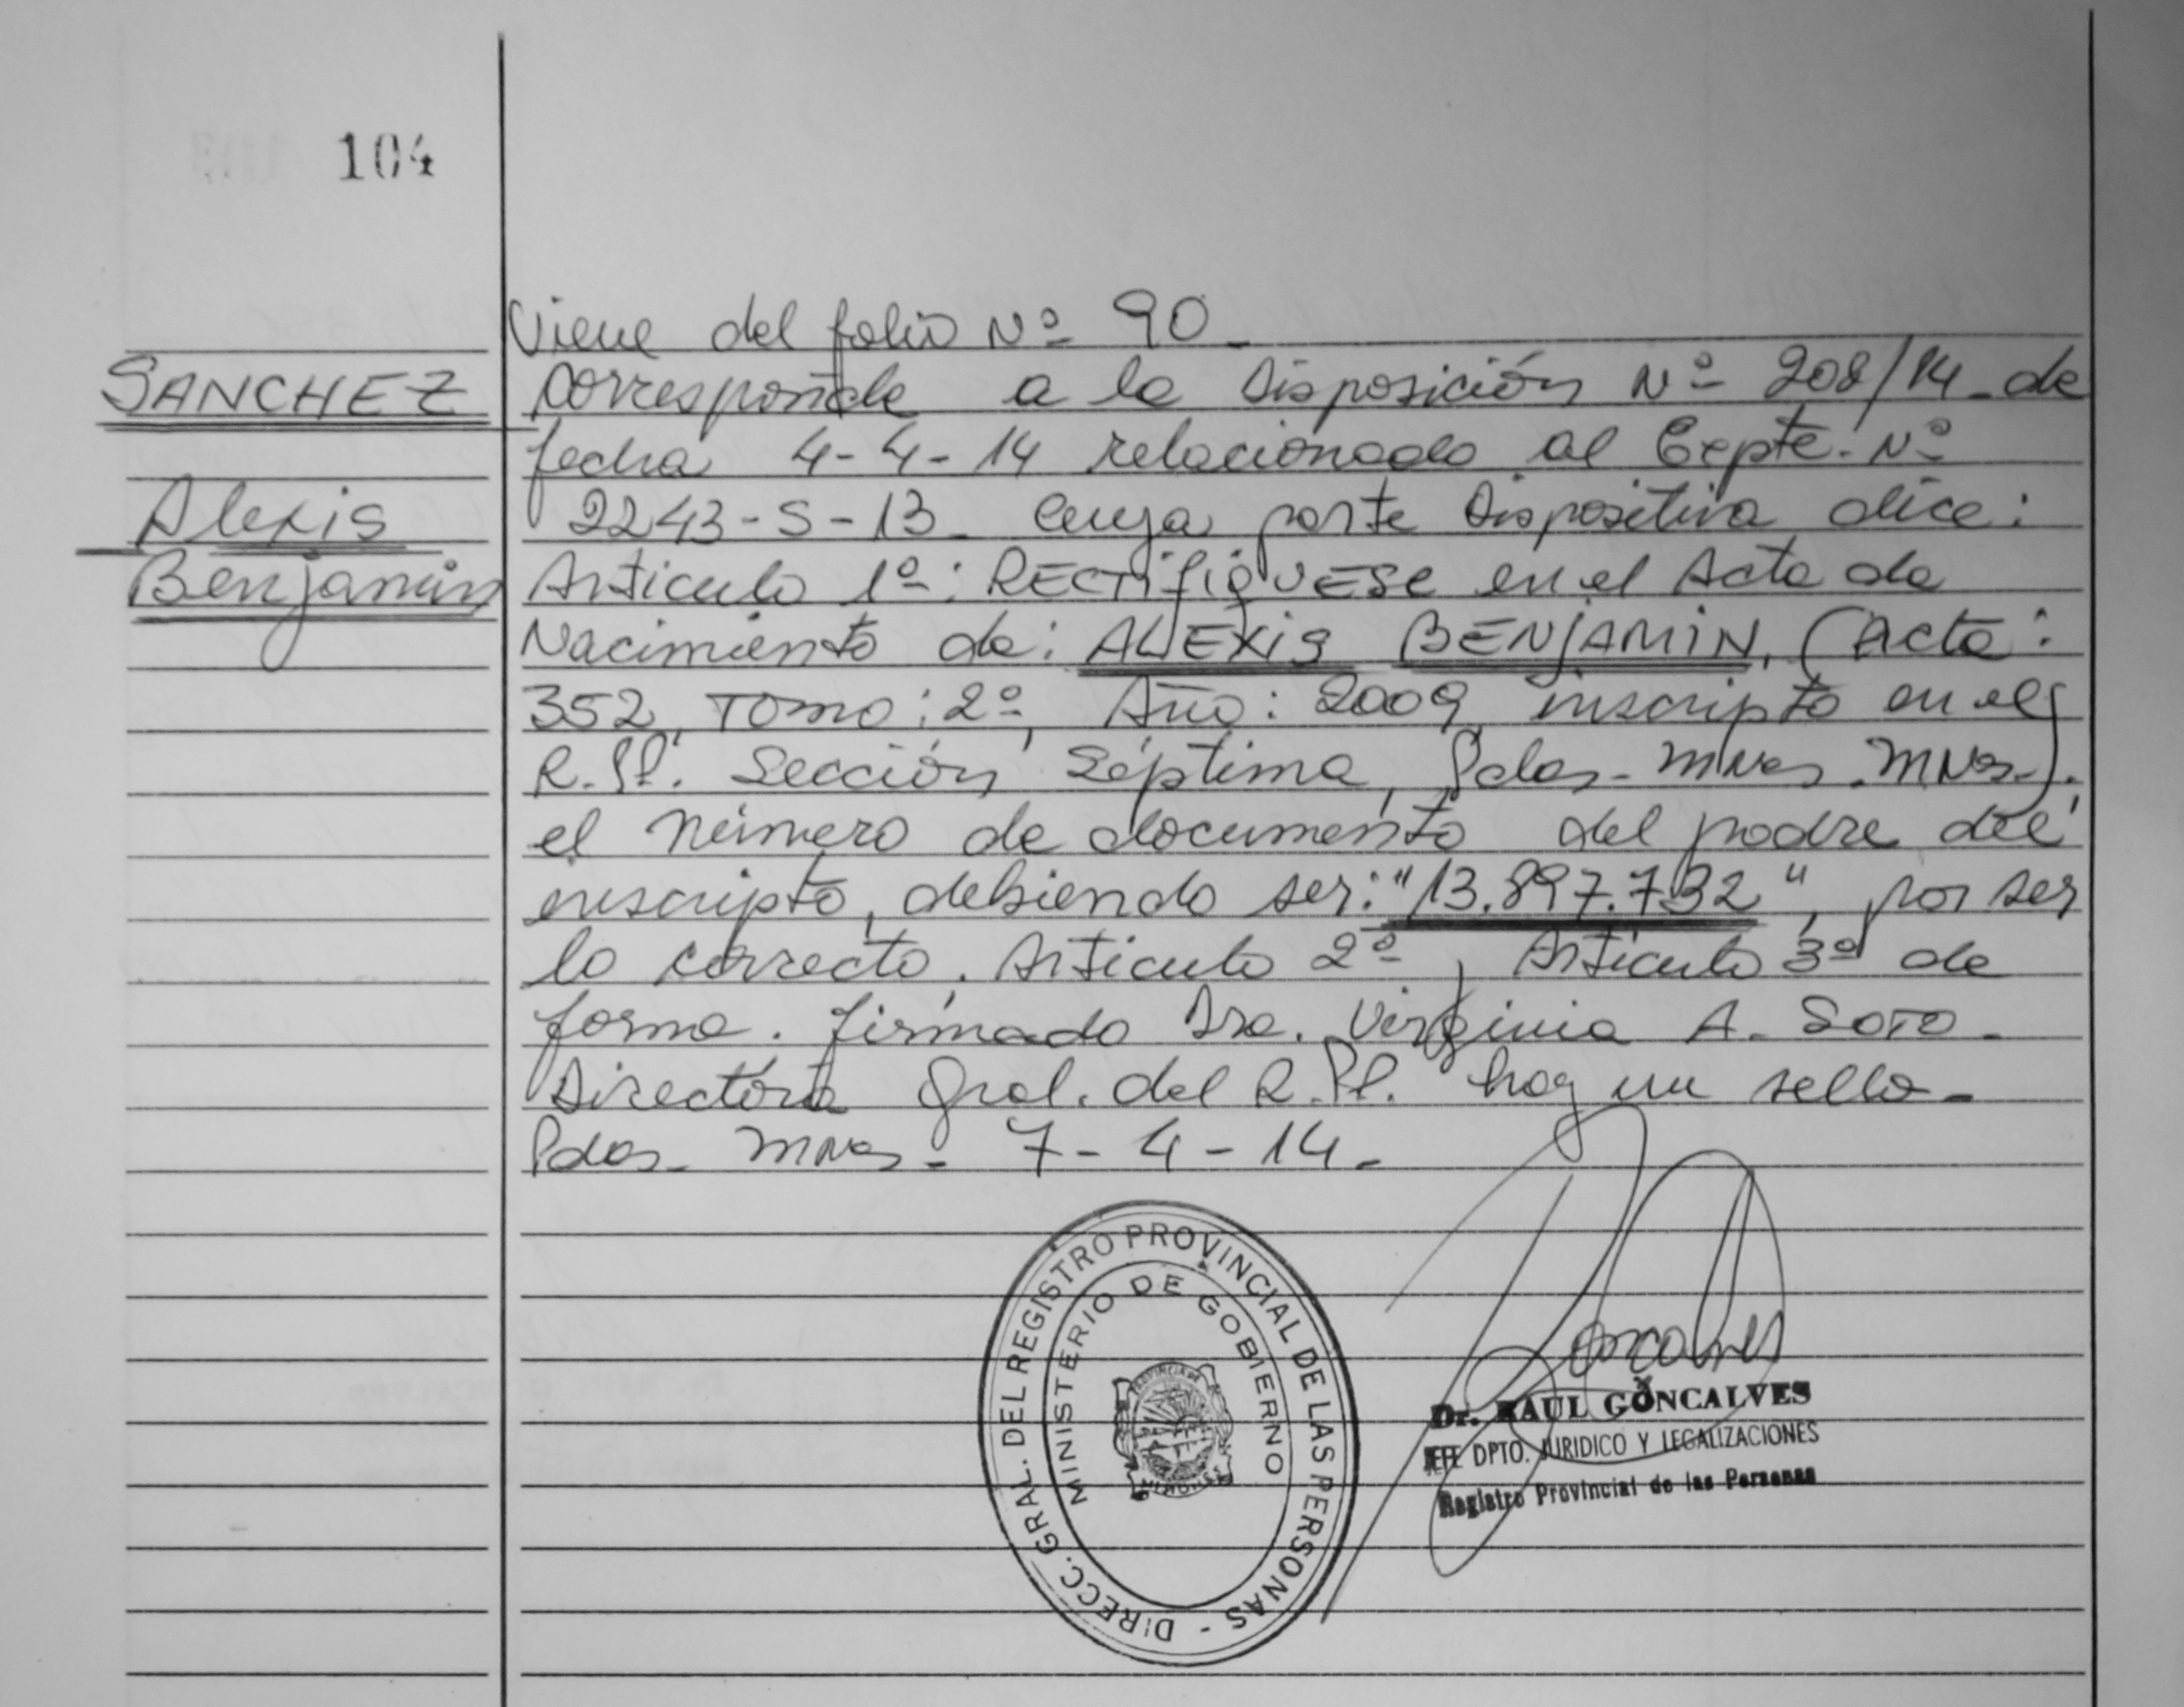 104
Viene del folio Nº 90_
SANCHEZ
Corresponde a la Disposición Nº 208/14_ de
fecha 4-4-14 relacionado al Expte. Nº
Alexis
2243-S-13_ cuya parte Dispositiva dice:
Benjamín
Articulo 1º: RECTIFIQUESE en el Acta de
Nacimiento de: ALEXIS BENJAMIN, (Acta:
352, Tomo: 2º, Año: 2009, inscripto en el
R.PP. Sección Séptima, Pdas- Mnes. Mnes-).
el número de documento del padre del
inscripto, debiendo ser: "13.897.732", por ser
lo correcto. Articulo 2º, Articulo 3º de
forma. firmado Dra. Virginia A. SOTO-
Directora Gral. del R.PP. hay un sello-
Pdas- Mnes- 7-4-14-
DIRECC. GRAL. DEL REGISTRO PROVINCIAL DE LAS PERSONAS -
MINISTERIO DE GOBIERNO
PROVINCIA DE
MISIONES
Goncalves
Dr. RAUL GONCALVES
JEFE DPTO. JURIDICO Y LEGALIZACIONES
Registro Provincial de las Personas